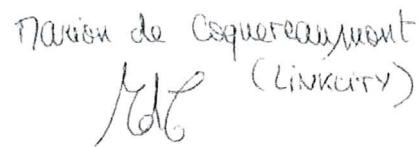 Marion de Coquereaumont
(LINKCITY)
MdC